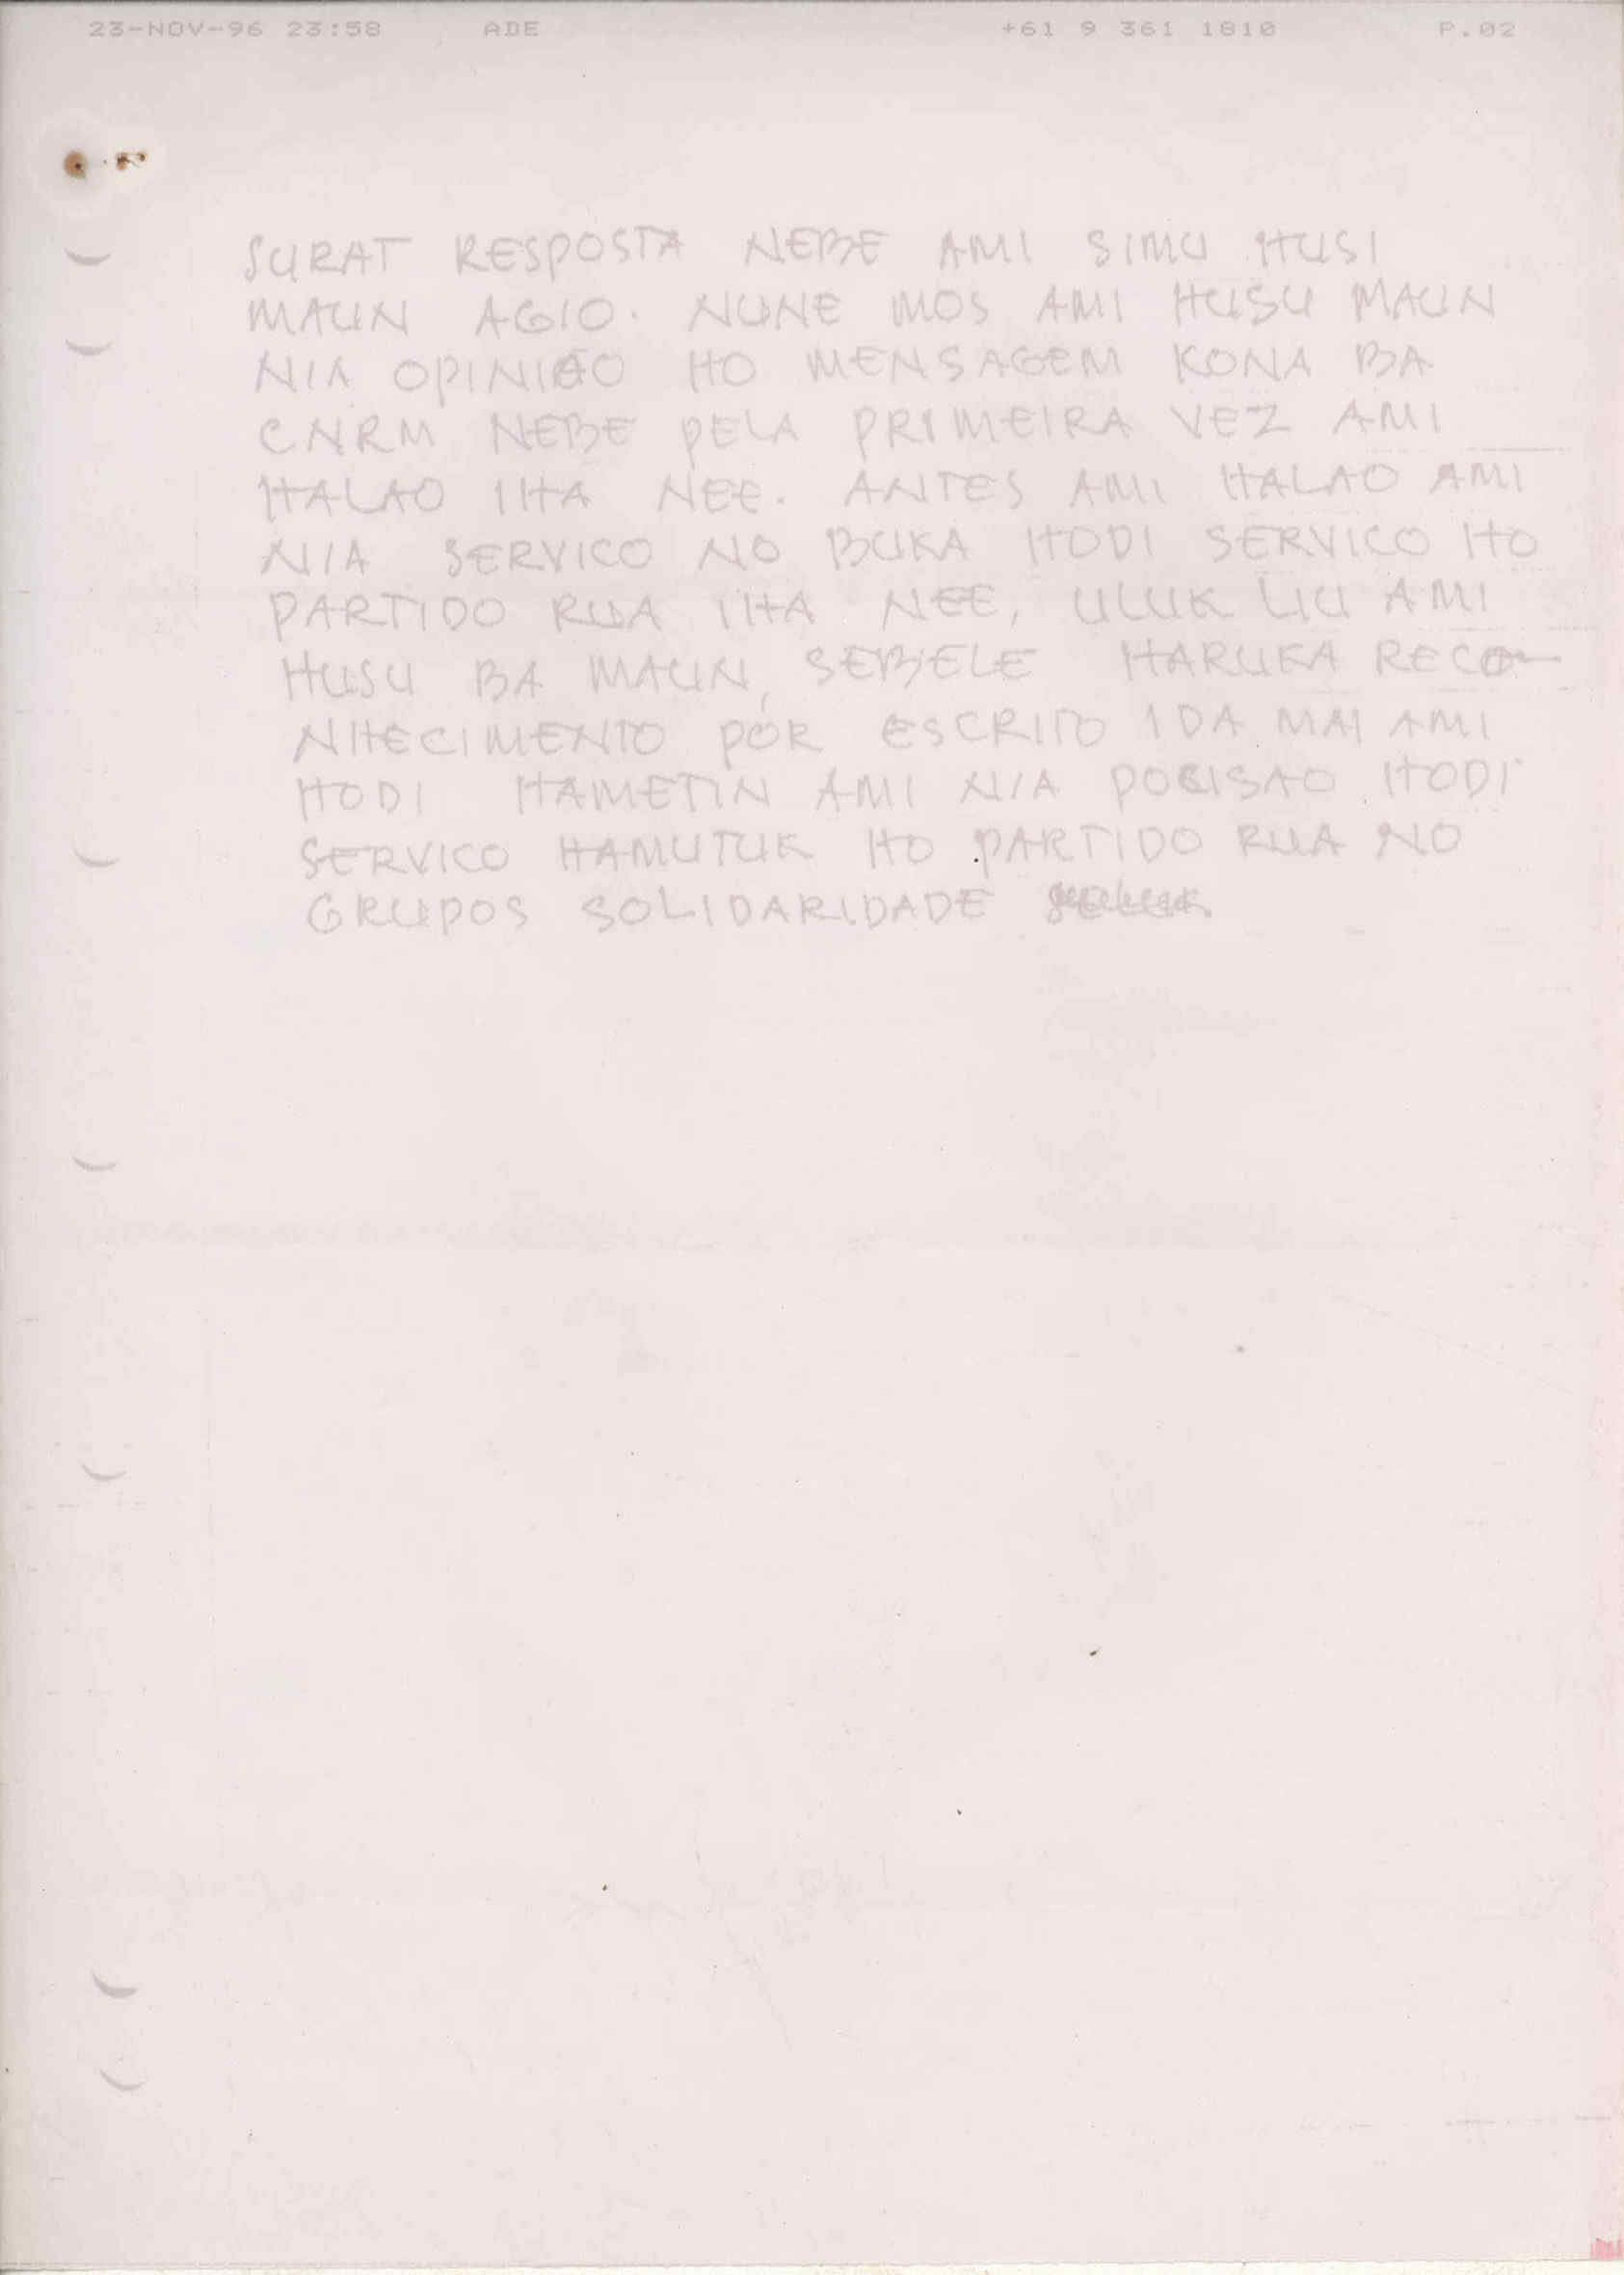 23-NOV-96 23:58 ADE +61 9 361 1810 P.02
SURAT RESPOSTA NEBE AMI SIMU HUSI
MAUN AGIO. NUNE MOS AMI HUSU MAUN
NIA OPINIÃO HO MENSAGEM KONA BA
CNRM NEBE PELA PRIMEIRA VEZ AMI
HALAO IHA NEE. ANTES AMI HALAO AMI
NIA SERVICO NO BUKA HODI SERVICO HO
PARTIDO RUA IHA NEE, ULUK LIU AMI
HUSU BA MAUN, SEBELE HARUKA RECO-
NHECIMENTO POR ESCRITO IDA MAI AMI
HODI HAMETIN AMI NIA POSISAO HODI
SERVICO HAMUTUK HO PARTIDO RUA NO
GRUPOS SOLIDARIDADE